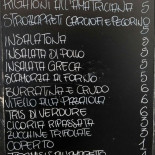 RIGATONI ALLA PAPPARIANA 5
STROZZAPRETI CARCIOFI E PECORINO 5
INSALATONA 5
INSALATA DI POLLO 5
INSALATA GRECA 5
SCAMORZA AL FORNO 5
BURRATINA E CRUDO 6
VITELLO ALLA PIZZAIOLA 6
TRIS DI VERDURE 6
CICORIA RIPASSATA
ZUCCHINE TRIFOLATE
COPERTO 1